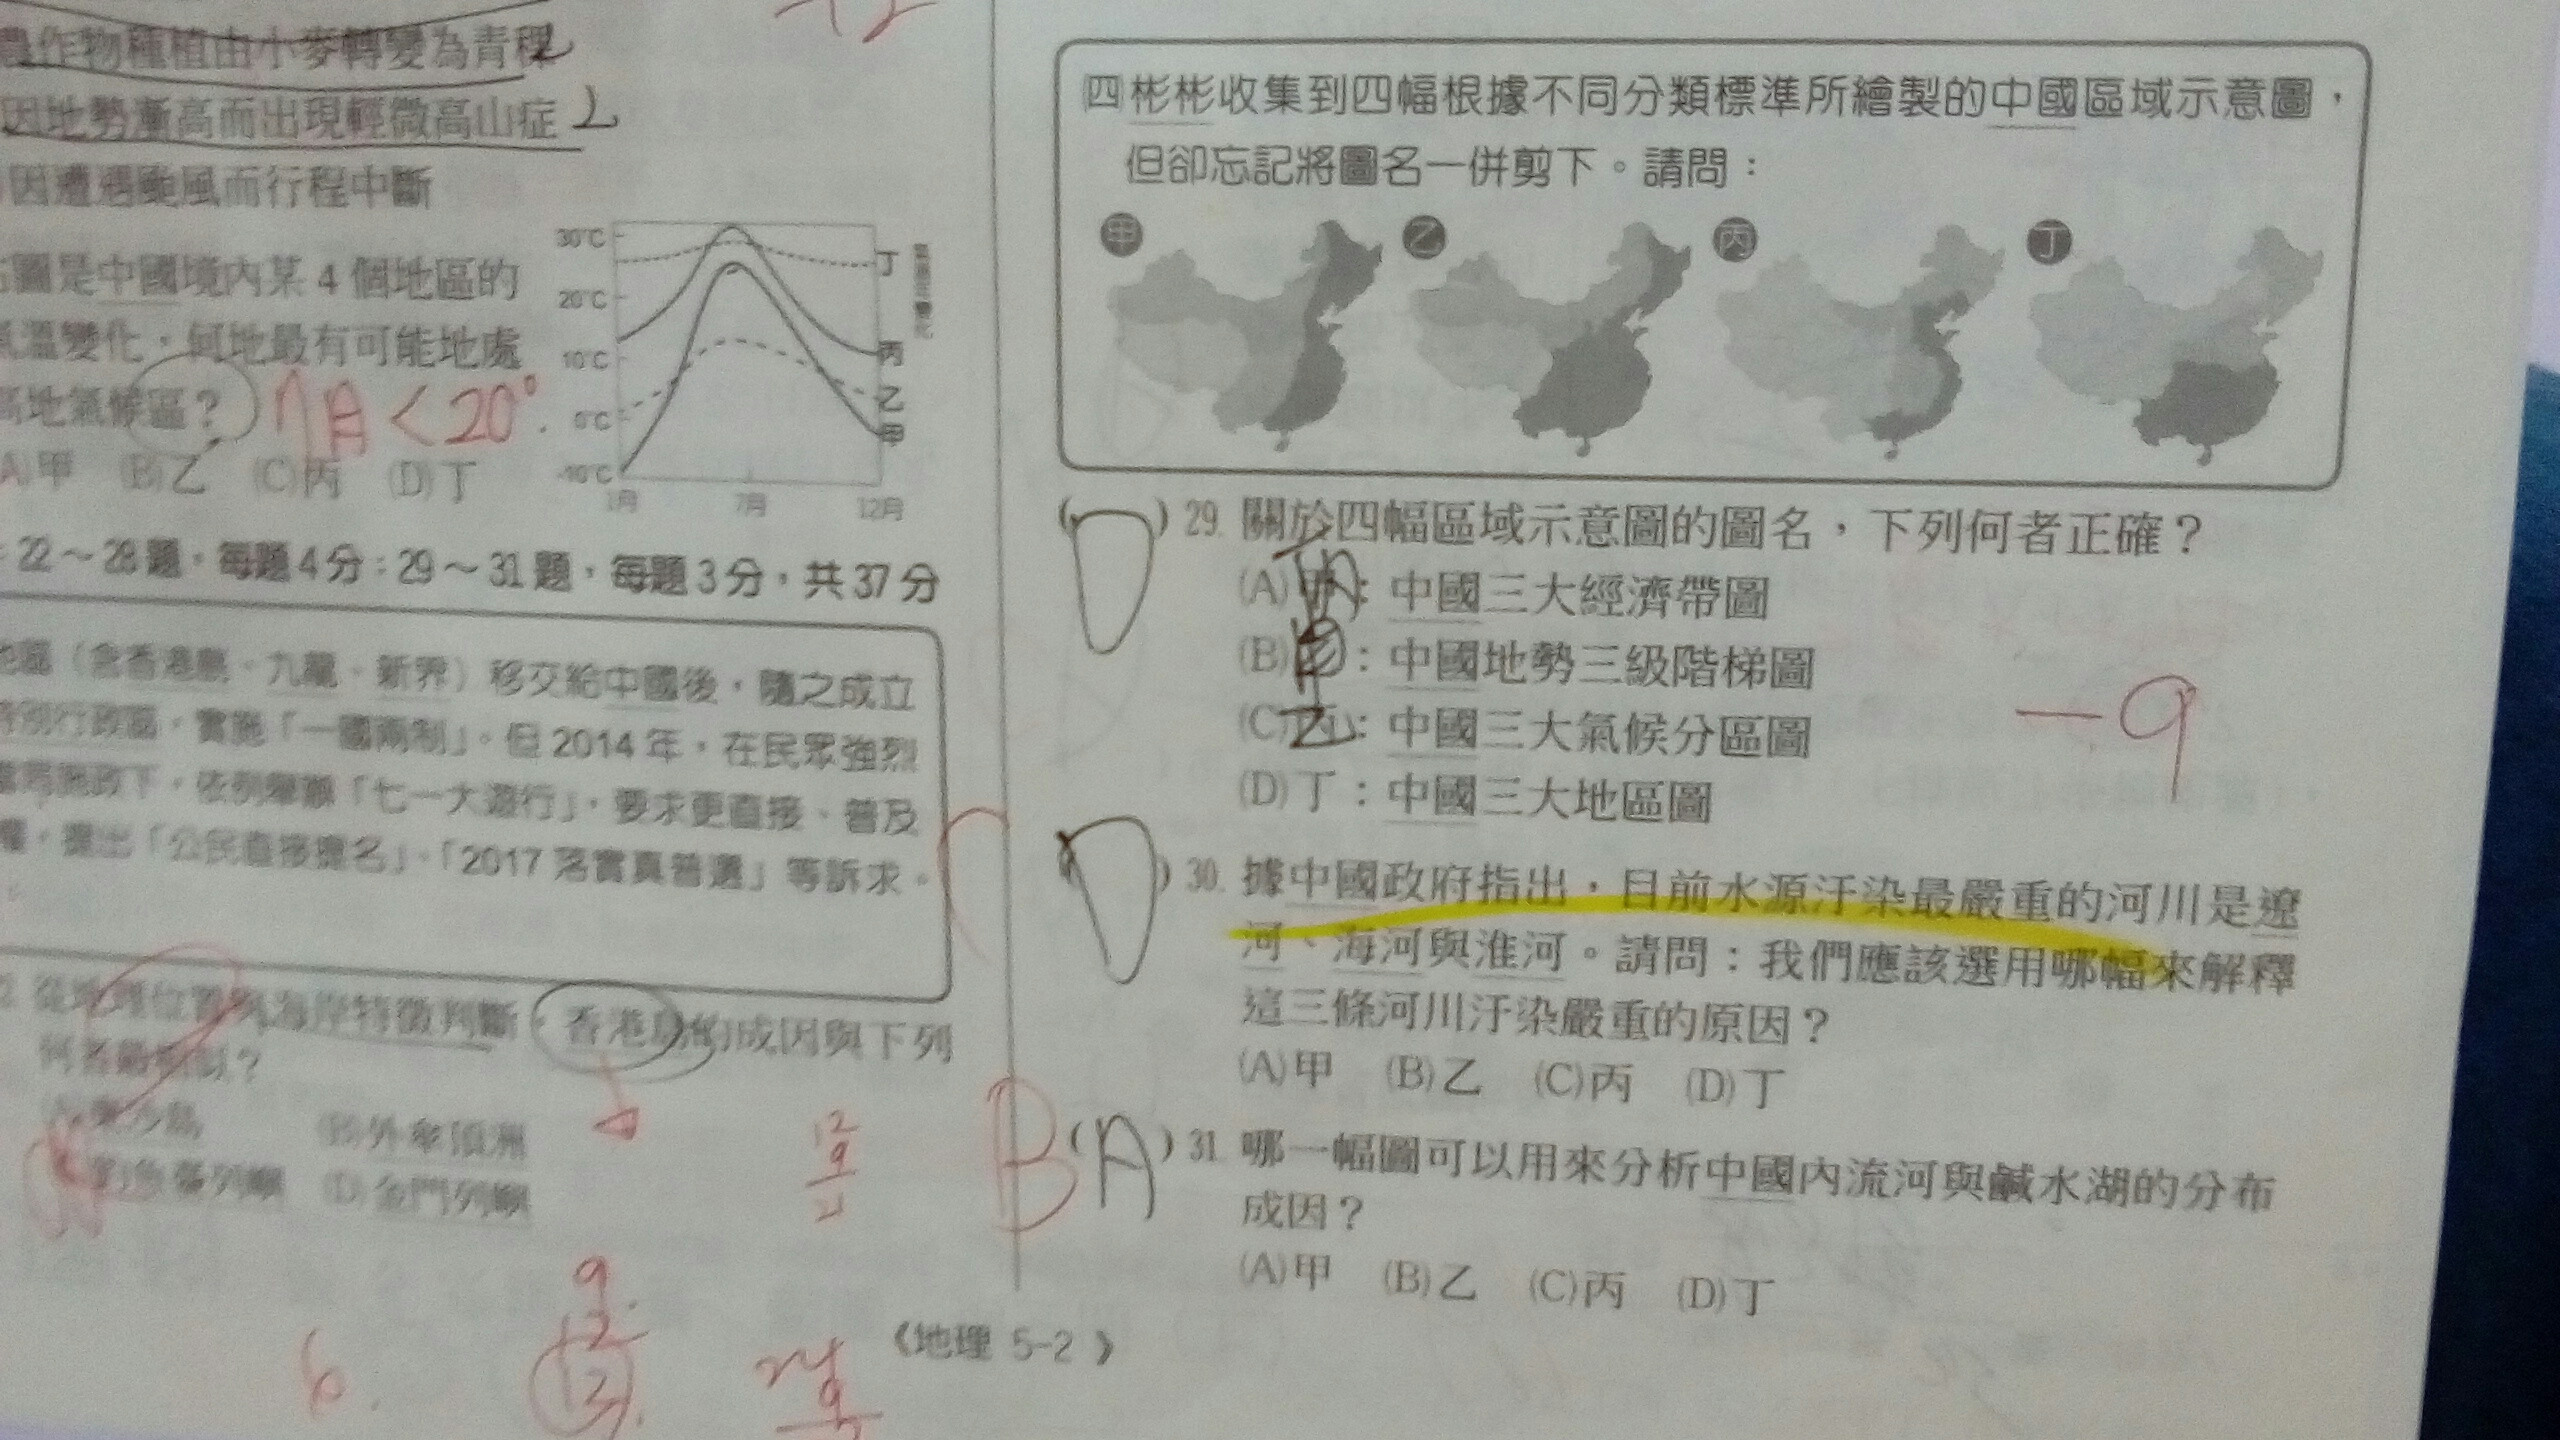 農作物種植由小麥轉變為青稞
因地勢漸高而出現輕微高山症
因遭遇颱風而行程中斷
圖是中國境內某4個地區的
氣溫變化,何地最有可能地處
高地氣候區?
7月<20°
(A)甲 (B)乙 (C)丙 (D)丁
30°C
20°C
10°C
0°C
-10°C
1月 7月 12月
丁
丙
乙
甲
22~28題,每題4分;29~31題,每題3分,共37分
地區(含香港島、九龍、新界)移交給中國後,隨之成立
特別行政區,實施「一國兩制」。但2014年,在民眾強烈
下,依例舉辦「七一大遊行」,要求更直接、普及
權,提出「公民直接提名」、「2017落實真普選」等訴求。
從地理位置與海岸特徵判斷,香港島的成因與下列
何者最相似?
(A)東沙島 (B)外傘頂洲
釣魚臺列嶼 (D)金門列嶼
12
9
21
9
12
6.
《地理 5-2》
四彬彬收集到四幅根據不同分類標準所繪製的中國區域示意圖,
但卻忘記將圖名一併剪下。請問:
甲 乙 丙 丁
( )29. 關於四幅區域示意圖的圖名,下列何者正確?
(A)甲:中國三大經濟帶圖
丙
(B)乙:中國地勢三級階梯圖
甲
(C)丙:中國三大氣候分區圖
乙
(D)丁:中國三大地區圖
-9
( )30. 據中國政府指出,目前水源汙染最嚴重的河川是遼
河、海河與淮河。請問:我們應該選用哪幅來解釋
這三條河川汙染嚴重的原因?
(A)甲 (B)乙 (C)丙 (D)丁
B
(A)31. 哪一幅圖可以用來分析中國內流河與鹹水湖的分布
成因?
(A)甲 (B)乙 (C)丙 (D)丁